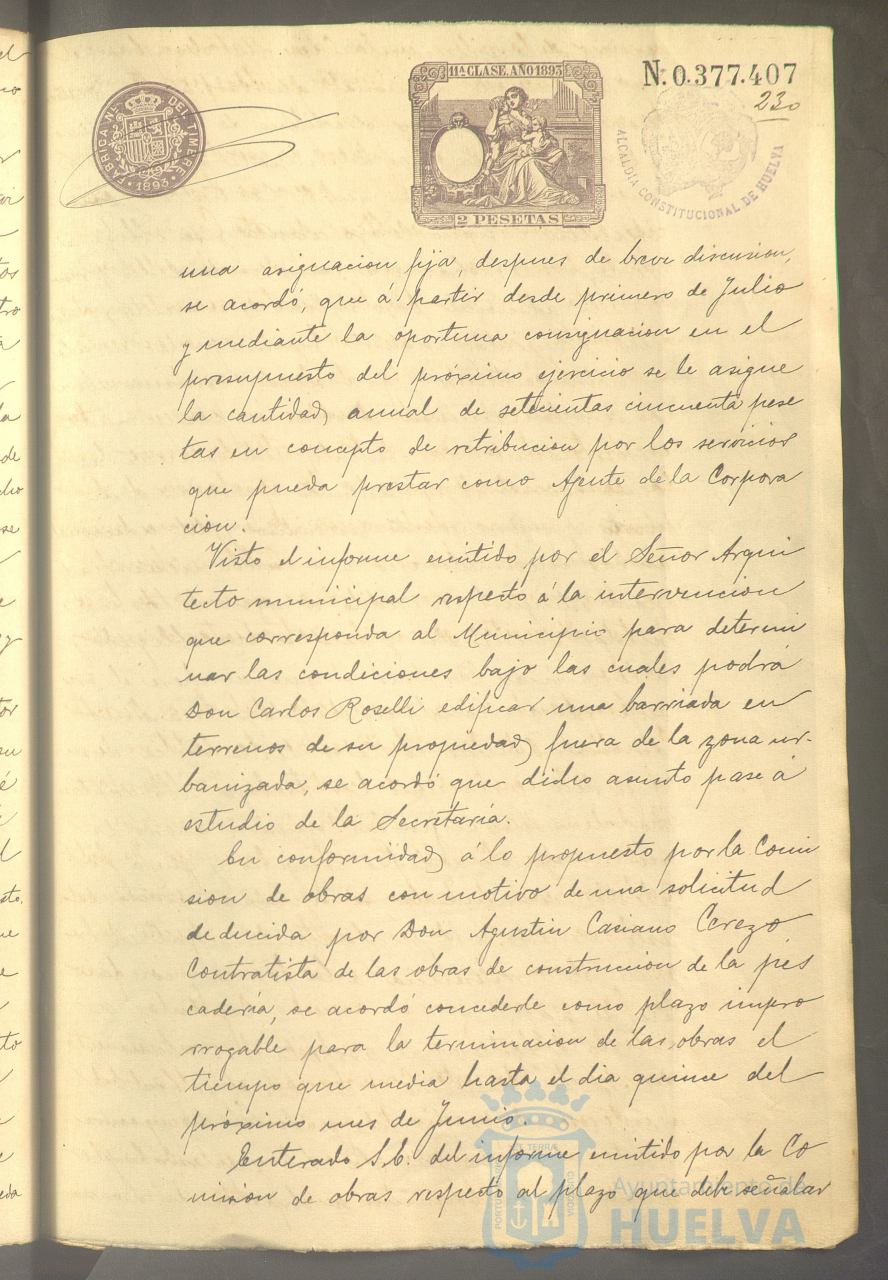 11ª CLASE. AÑO 1893
N. 0.377.407
230
FABRICA NL. DEL TIMBRE
1893
2 PESETAS
ALCALDIA CONSTITUCIONAL DE HUELVA
una asignacion fija, despues de breve discusion,
se acordó, que á partir desde primero de Julio
y mediante la oportuna consignacion en el
presupuesto del próximo ejercicio se le asigne
la cantidad anual de setecientas cincuenta pese
tas en concepto de retribucion por los servicios
que pueda prestar como Ajente de la Corpora
cion.
Visto el informe emitido por el Señor Arqui
tecto municipal respecto á la intervencion
que corresponda al Municipio para determi
nar las condiciones bajo las cuales podrá
Don Carlos Roselli edificar una barriada en
terrenos de su propiedad fuera de la zona ur-
banizada, se acordó que dicho asunto pase á
estudio de la Secretaría.
En conformidad á lo propuesto por la Comi
sion de obras con motivo de una solicitud
deducida por Don Agustin Casiano Cerezo
Contratista de las obras de construccion de la pes
cadería, se acordó concederle como plazo impro
rrogable para la terminacion de las obras el
tiempo que media hasta el dia quince del
próximo mes de Junio.
Enterado S.E. del informe emitido por la Co
mision de obras respecto al plazo que debe señalar
Ayuntamiento de
HUELVA